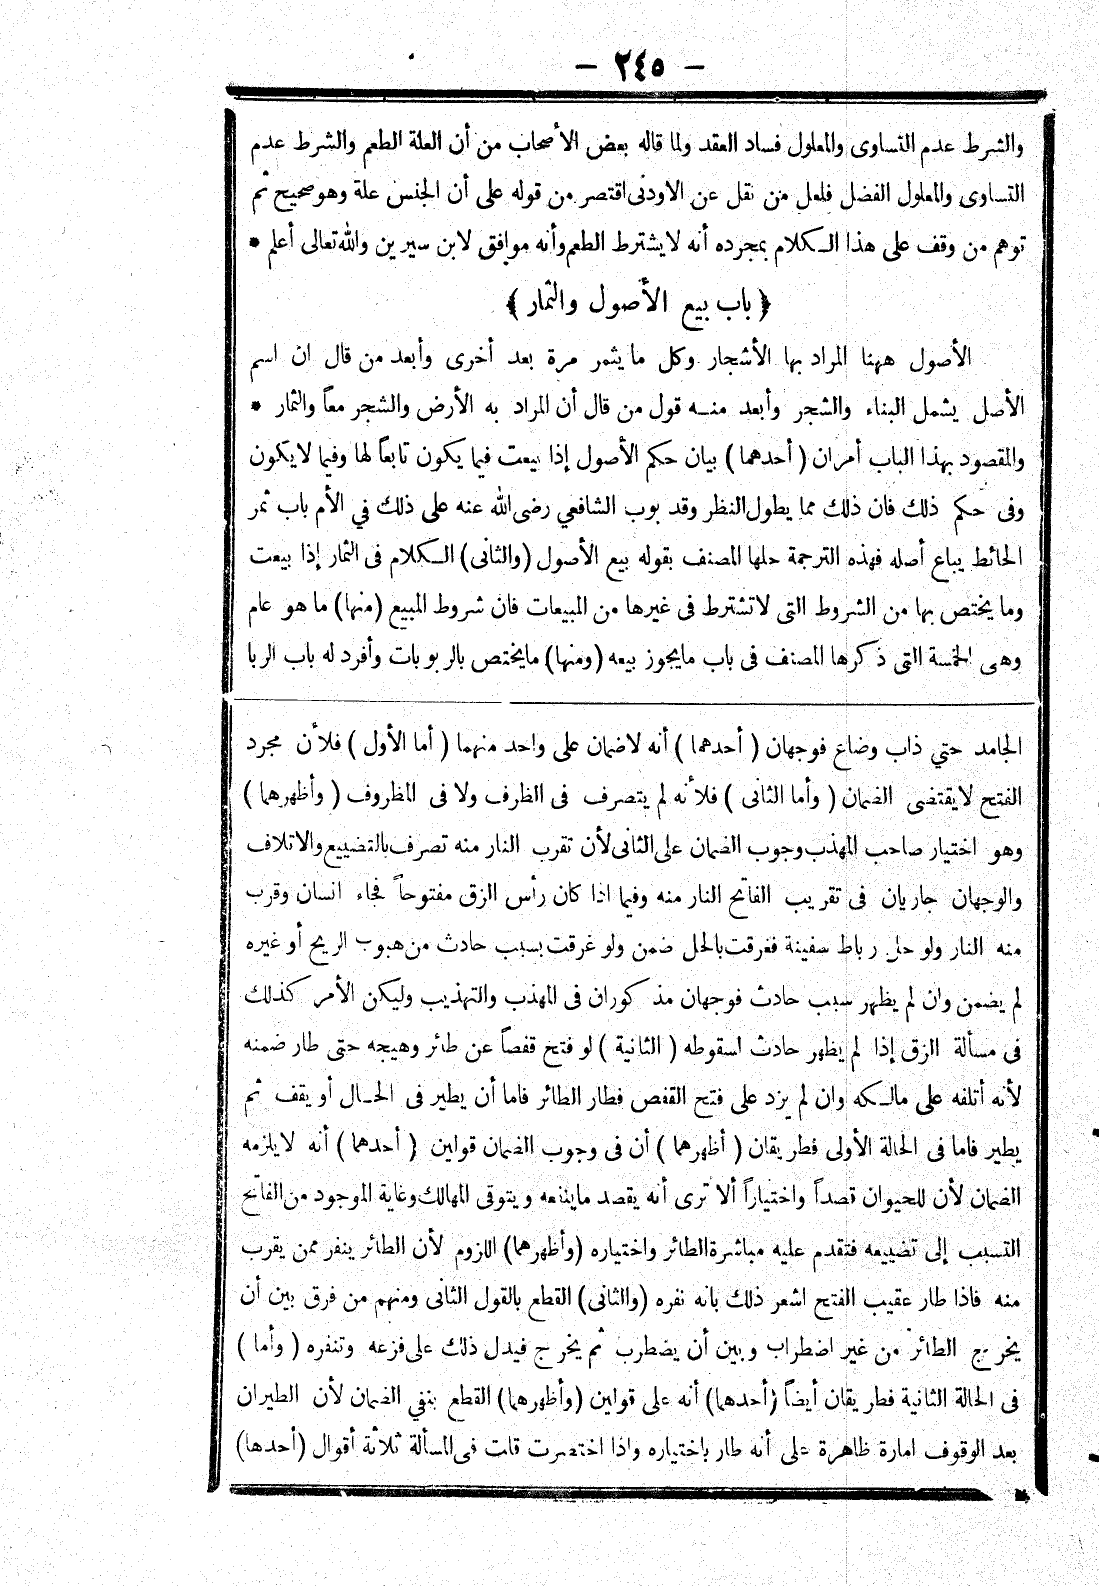 - ٢٤٥ -
والشرط عدم التساوى والمعلول فساد العقد ولما قاله بعض الأصحاب من أن العلة الطعم والشرط عدم
التساوى والمعلول الفضل فلعل من نقل عن الاودنى اقتصر من قوله على أن الجنس علة وهو صحيح ثم
توهم من وقف على هذا الكلام بمجرده أنه لا يشترط الطعم وأنه موافق لابن سيرين والله تعالى أعلم *
﴿ باب بيع الأصول والثمار ﴾
الأصول ههنا المراد بها الأشجار وكل ما يثمر مرة بعد أخرى وأبعد من قال ان اسم
الأصل يشمل البناء والشجر وأبعد منه قول من قال أن المراد به الأرض والشجر معاً والثمار *
والمقصود بهذا الباب أمران ( أحدهما ) بيان حكم الأصول إذا بيعت فيما يكون تابعاً لها وفيما لا يكون
وفى حكم ذلك فان ذلك مما يطول النظر وقد بوب الشافعي رضى الله عنه على ذلك في الأم باب ثمر
الحائط يباع أصله فهذه الترجمة حلها المصنف بقوله بيع الأصول (والثانى) الكلام فى الثمار إذا بيعت
وما يختص بها من الشروط التى لا تشترط فى غيرها من المبيعات فان شروط المبيع (منها) ما هو عام
وهى الخمسة التى ذكرها المصنف فى باب ما يجوز بيعه (ومنها) ما يختص بالربوبات وأفرد له باب الربا
الجامد حتي ذاب وضاع فوجهان ( أحدهما ) أنه لا ضمان على واحد منهما ( أما الأول ) فلأن مجرد
الفتح لا يقتضى الضمان ( وأما الثانى ) فلأنه لم يتصرف فى الظرف ولا فى المظروف ( وأظهرهما )
وهو اختيار صاحب المهذب وجوب الضمان على الثانى لأن تقرب النار منه تصرف بالتضييع والاتلاف
والوجهان جاريان فى تقريب الفاتح النار منه وفيما اذا كان رأس الزق مفتوحاً فجاء انسان وقرب
منه النار ولو حل رباط سفينة فغرقت بالحل ضمن ولو غرقت بسبب حادث من هبوب الريح أو غيره
لم يضمن وان لم يظهر سبب حادث فوجهان مذكوران فى المهذب والتهذيب وليكن الأمر كذلك
فى مسألة الزق إذا لم يظهر حادث لسقوطه ( الثانية ) لو فتح قفصاً عن طائر وهيجه حتى طار ضمنه
لأنه أتلفه على مالكه وان لم يزد على فتح القفص فطار الطائر فاما أن يطير فى الحال أو يقف ثم
يطير فاما فى الحالة الأولى فطريقان ( أظهرهما ) أن فى وجوب الضمان قولين ( أحدهما ) أنه لا يلزمه
الضمان لأن للحيوان قصداً واختياراً ألا ترى أنه يقصد ما ينفعه ويتوقى المهالك وغاية الموجود من الفاتح
التسبب إلى تضييعه فتقدم عليه مباشرة الطائر واختياره (وأظهرهما) اللزوم لأن الطائر ينفر ممن يقرب
منه فاذا طار عقيب الفتح اشعر ذلك بانه نفره (والثانى) القطع بالقول الثانى ومنهم من فرق بين أن
يخرج الطائر من غير اضطراب وبين أن يضطرب ثم يخرج فيدل ذلك على فزعه وتنفره ( وأما )
فى الحالة الثانية فطريقان أيضاً (أحدهما) أنه على قولين (وأظهرهما) القطع بنفي الضمان لأن الطيران
بعد الوقوف امارة ظاهرة على أنه طار باختياره واذا اختصرت قلت فى المسألة ثلاثة أقوال (أحدها)